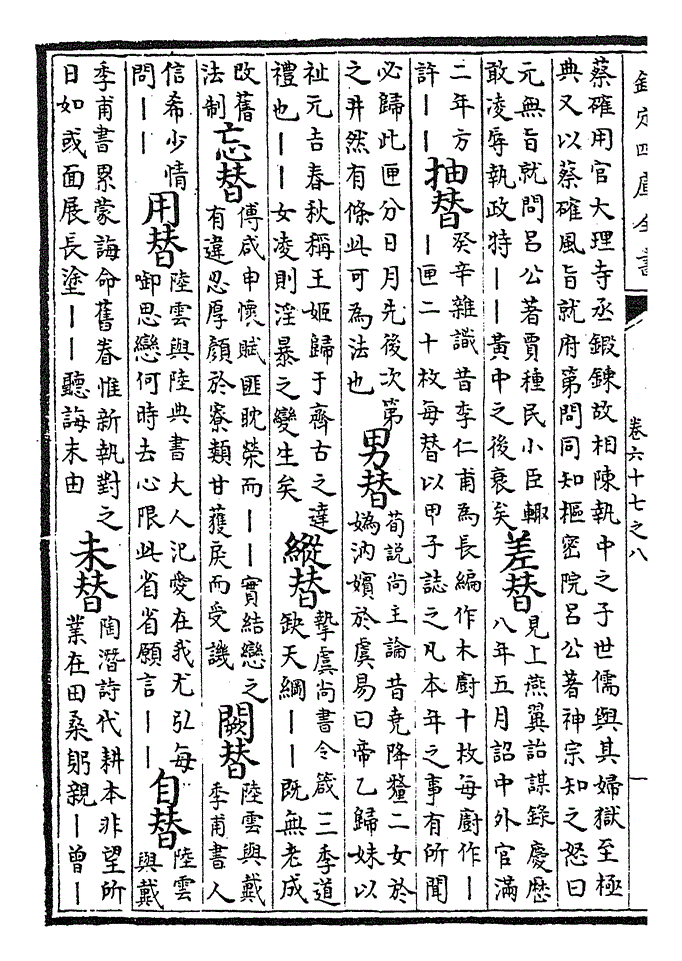 欽定四庫全書
卷六十七之八
一
蔡確用官大理寺丞鍛鍊故相陳執中之子世儒與其婦獄至極
典又以蔡確風旨就府第問同知樞密院呂公著神宗知之怒曰
元無旨就問呂公著賈種民小臣輙
敢凌辱執政特||黃中之後衰矣
差替
見上燕翼詒謀錄慶歷
八年五月詔中外官滿
二年方
許||
抽替
癸辛雜識昔李仁甫為長編作木廚十枚每廚作|
|匣二十枚每替以甲子誌之凡本年之事有所聞
必歸此匣分日月先後次第
之井然有條此可為法也
男替
荀説尚主論昔堯降釐二女於
媯汭嬪於虞易曰帝乙歸妹以
祉元吉春秋稱王姬歸于齊古之達
禮也||女凌則淫暴之變生矣
縱替
摯虞尚書令箴三季道
缺天綱||既無老成
改舊
法制
忘替
傅咸申懷賦匪眈榮而||實結戀之
有違忍厚顔於寮類甘獲戾而受譏
闕替
陸雲與戴
季甫書人
信希少情
問||
用替
陸雲與陸典書大人汜愛在我尤弘每
啣思戀何時去心限此省省願言||
自替
陸雲
與戴
季甫書累蒙誨命舊眷惟新執對之
日如或面展長塗||聽誨末由
未替
陶潛詩代耕本非望所
業在田桑躬親|曾|